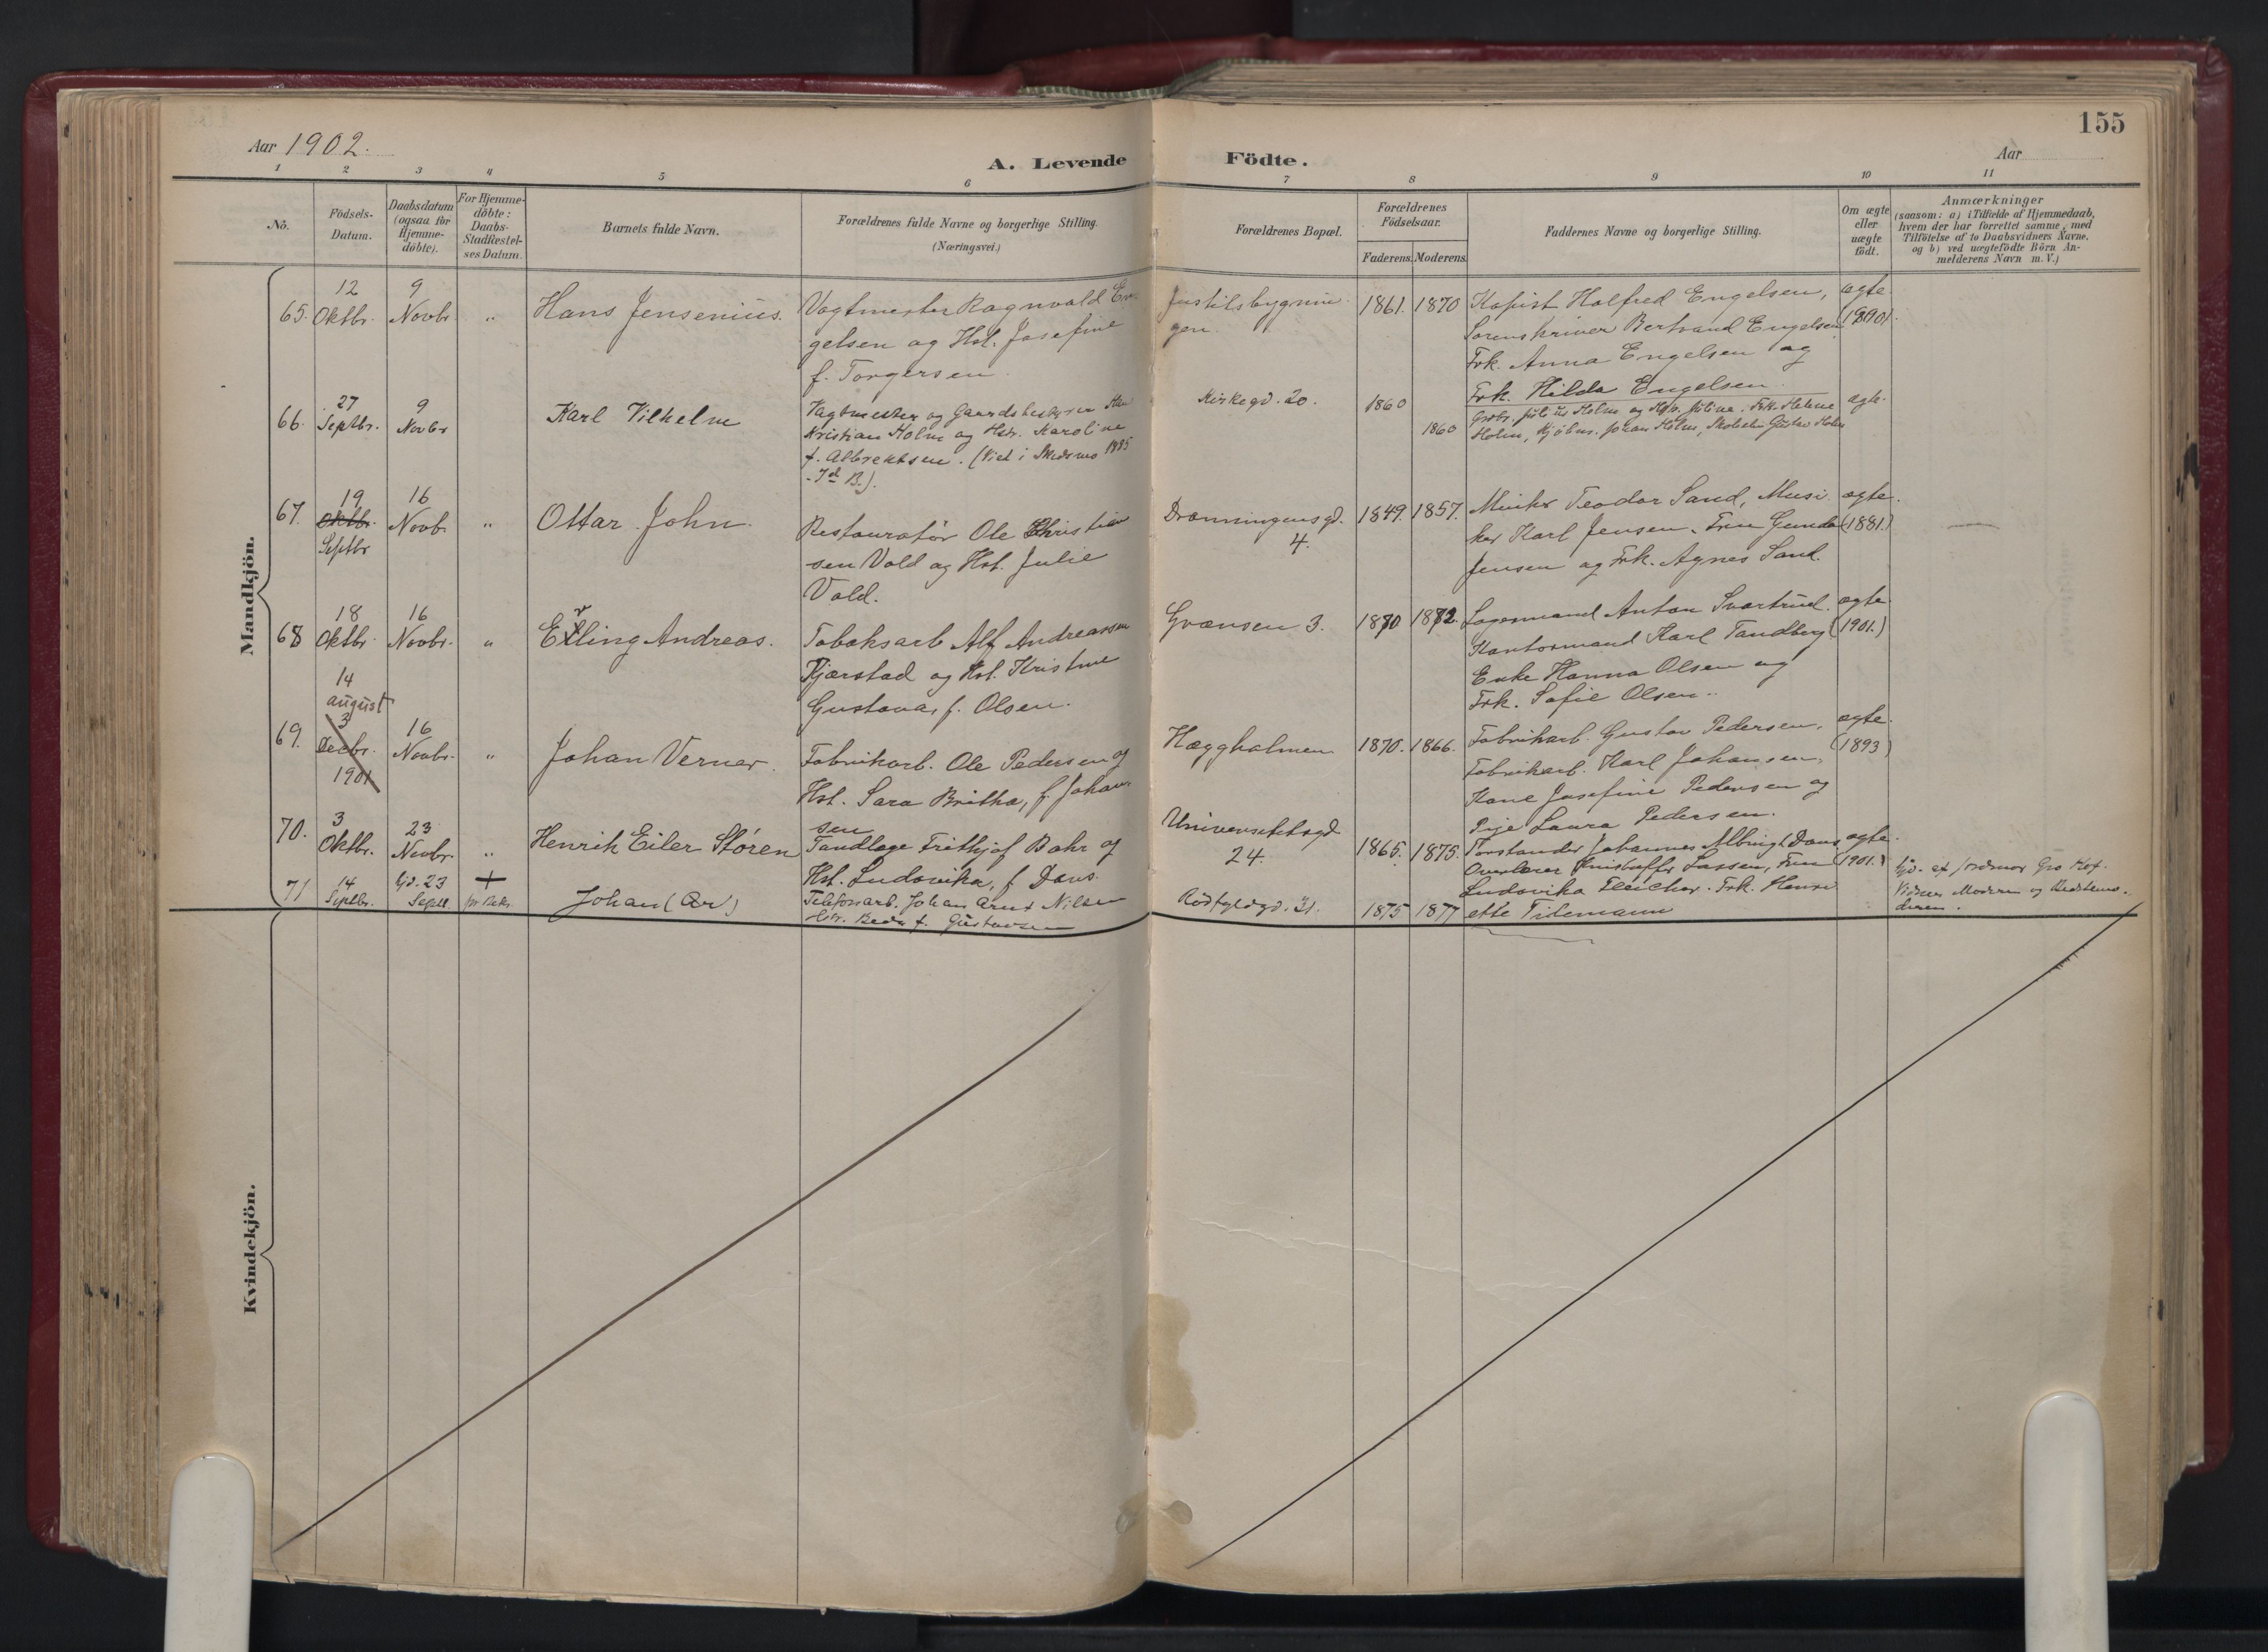 155
Aar 1902.
A. Levende Födte.
Aar
1 2 3 4 5 6 7 8 9 10 11
No.
Födsels-Datum.
Daabsdatum (ogsaa for Hjemme-döbte).
For Hjemme-döbte: Daabs-Stadfæstel-ses Datum.
Barnets fulde Navn.
Forældrenes fulde Navne og borgerlige Stilling.
(Næringsvei.)
Forældrenes Bopæl.
Forældrenes Födselsaar.
Faderens. Moderens.
Faddernes Navne og borgerlige Stilling.
Om ægte eller uægte födt.
Anmærkninger
(saasom: a) i Tilfælde af Hjemmedaab, hvem der har forrettet samme, med Tilföielse af to Daabsvidners Navne, og b) ved uægtefödte Börn An-melderens Navn m. V.)
Mandkjön.
65. 12 Oktbr. 9 Novbr. " Hans Jensenius.
Vagtmester Ragnvald En-
gelsen og Hst. Josefine
f. Torgersen.
Justitsbygnin-
gen.
1861. 1870
Kopist Halfred Engelsen,
Sorenskriver Bertrand Engelsen
Frk. Anna Engelsen og
Frk. Hilda Engelsen
ægte.
66. 27 Septbr. 9 Novbr Karl Vilhelm
Vagtmester og Gaardsbestyrer
Kristian Holm og Hstr. Karoline
f. Albrektsen. (Viet i Skedsmo 1885
Kirkegd. 20.
1860 1860
Julius Holm og Juline. Frk. Helene
Holm, Johan Holm, Gustav Holm
ægte.
67. 19 Oktbr. Septbr 16 Novb. " Ottar John.
Restauratør Ole Christian
sen Vold og Hst. Julie
Vold.
Dronningensgd.
4.
1849. 1857.
Teodor Sand, Musi
ker Karl Jensen, Fru Gunda
Jensen og Frk. Agnes Sand.
ægte.
(1881.)
68 18 Oktbr 16 Novbr. " Erling Andreas.
Tobaksarb Alf Andreassen
Kjærstad og Hst. Kristine
Gustava, f. Olsen.
Grænsen 3.
1870 1872.
Lagermand Anton Svartrud.
Kontormand Karl Tandberg
Enke Hanna Olsen og
Frk. Sofie Olsen.
ægte
(1901.)
69. 14 august 3 Decbr. 1901 16 Novbr. " Johan Verner.
Fabrikarb. Ole Pedersen og
Hst. Sara Britha, f. Johan-
sen
Hæggholmen
1870. 1866.
Fabrikarb. Gustav Pedersen,
Fabrikarb. Karl Johansen,
Kone Josefine Pedersen og
Pige Laura Pedersen.
ægte.
(1893)
70. 3 Oktbr. 23 Novbr. " Henrik Eiler Støren
Tandlæge Frithjof Bahr og
Hst. Ludovika, f Daus.
Universitetsgd.
24.
1865. 1875.
Forstander Johannes Albrigt Daus
Overlærer Kristoffer Lassen, Fru
Ludovika Fleicher. Frk. Henri
ette Tilemann
ægte.
(1901.)
71 14 Septbr. Hjd. 23 Septb. + Johan (Ar)
Telefonarb. Johan Arnt Nilsen
Hstr. Beda f. Gustavsen
Rødfyldgd. 21.
1875 1877
Hjd. af Jordmor Gro
Vidner Moderen og Bedstemo-
deren.
Kvindekjön.